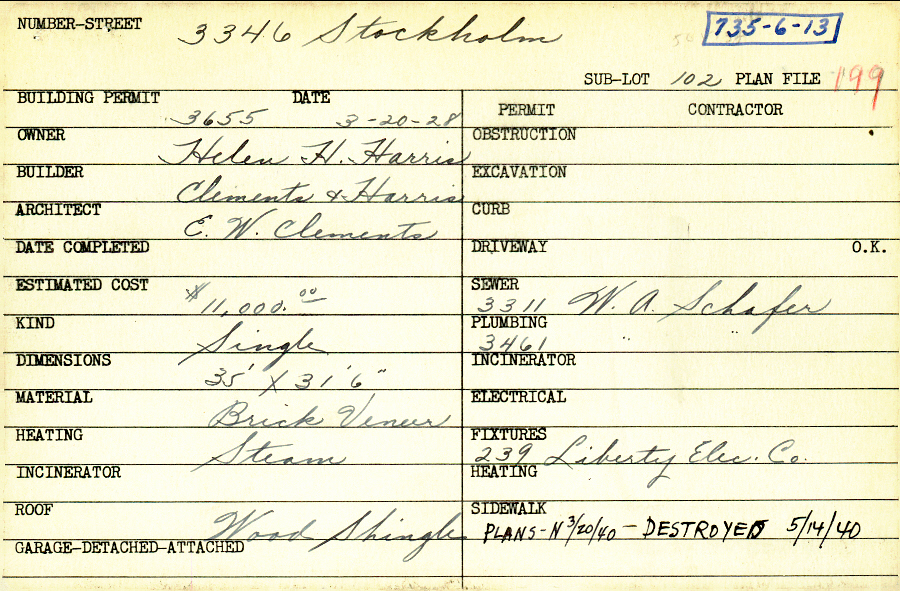 NUMBER-STREET 3346 Stockholm 735-6-13
SUB-LOT 102 PLAN FILE 199
BUILDING PERMIT 3655 DATE 3-20-28
PERMIT CONTRACTOR
OWNER Helen H. Harris
OBSTRUCTION
BUILDER Clements & Harris
EXCAVATION
ARCHITECT E. W. Clements
CURB
DATE COMPLETED
DRIVEWAY O.K.
ESTIMATED COST $11,000.00
SEWER 3311 W. A. Schafer
KIND Single
PLUMBING 3461 "
DIMENSIONS 35' X 31'6"
INCINERATOR
MATERIAL Brick Veneer
ELECTRICAL
HEATING Steam
FIXTURES 239 Liberty Elec. Co.
INCINERATOR
HEATING
ROOF Wood Shingle
SIDEWALK
PLANS-N 3/20/40 - DESTROYED 5/14/40
GARAGE-DETACHED-ATTACHED